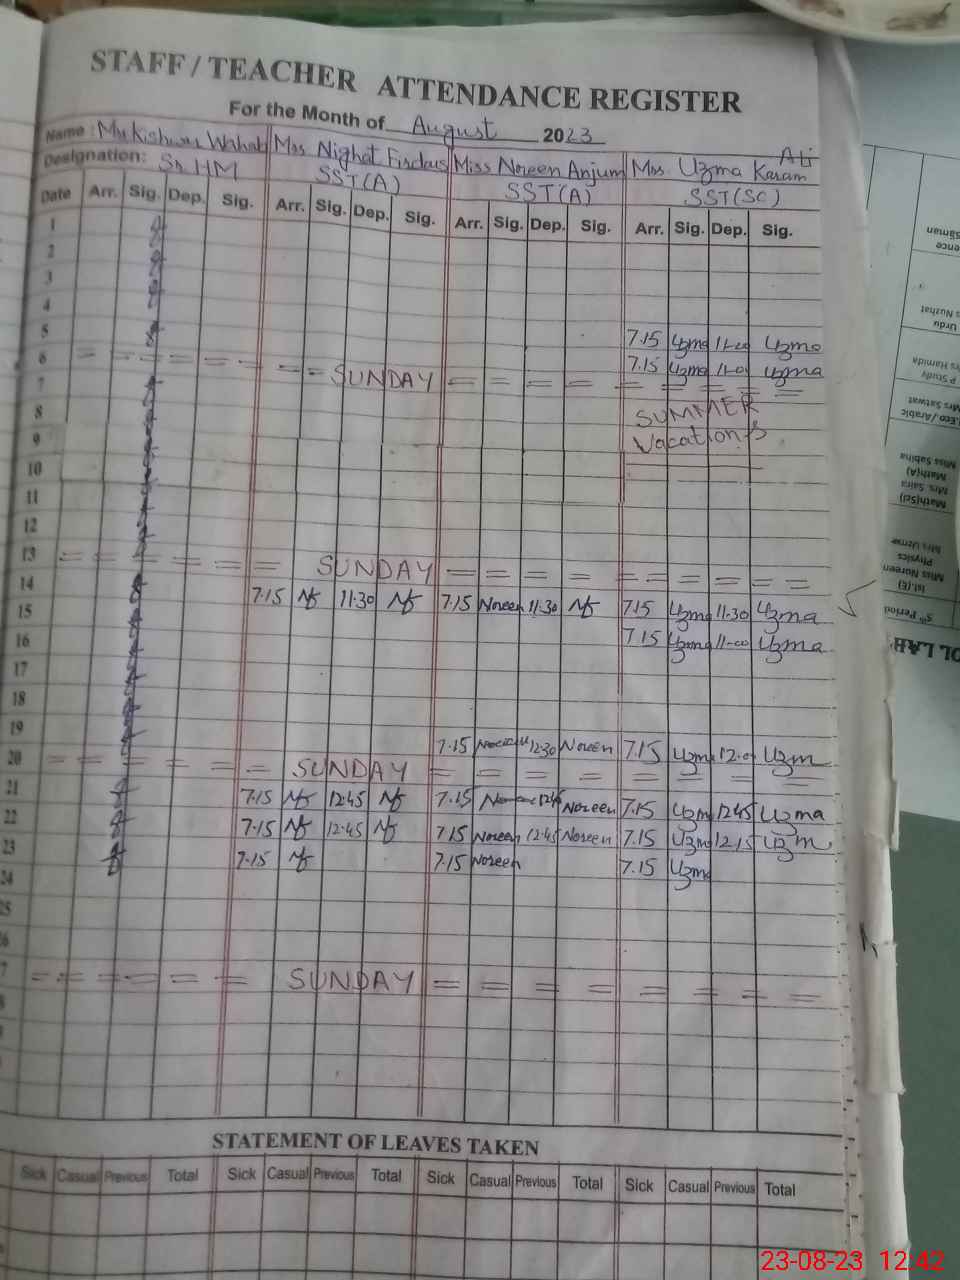 STAFF / TEACHER ATTENDANCE REGISTER
For the Month of August 2023
Name : Mrs Kishwar Wahhab Mrs Nighat Firdaus Miss Noreen Anjum Mrs. Uzma Karam Ali
Designation: Sr. HM SST(A) SST(A) SST(SC)
Date Arr. Sig. Dep. Sig. Arr. Sig. Dep. Sig. Arr. Sig. Dep. Sig. Arr. Sig. Dep. Sig.
1
2
3
4
5 7.15 Uzma 11-00 Uzma
6 7.15 Uzma 11-00 Uzma
= - - = = = - - = SUNDAY = = = = = = = =
7
8 SUMMER
9 Vacations
10
11
12
13 = = = = = = = SUNDAY = = = = = = = = = =
14
15 7.15 11.30 7.15 Noreen 11.30 7.15 Uzma 11-30 Uzma
16 7.15 Uzma 11-00 Uzma
17
18
19 7.15 12.30 Noreen 7.15 Uzma 12.0 Uzm
20 = = = = = = SUNDAY = = = = = = = =
21 7.15 12.45 7.15 Noreen 7.15 Uzm 12.45 Uzma
22 7.15 12.45 7.15 Noreen 12.45 Noreen 7.15 Uzm 12.15 Uzm
23 7.15 7.15 Noreen 7.15 Uzma
24
25
26
7 = = = = = = SUNDAY = = = = = = = =
STATEMENT OF LEAVES TAKEN
Sick Casual Previous Total Sick Casual Previous Total Sick Casual Previous Total Sick Casual Previous Total
Urdu
Mrs Hamida
P Study
Mrs Satwat
H.Eco / Arabic
Miss Sabiha
Math(A)
Mrs. Saira
Math(Sci)
Physics
Miss Nureen
Isl.(E)
5th Period
23-08-23 12:42